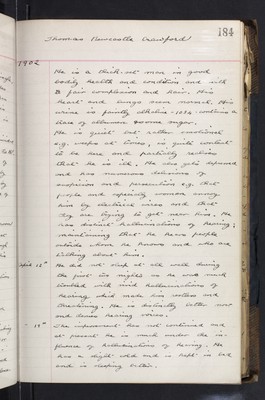 184
Thomas Newcastle Crawford
1902
He is a thick-set man in good
bodily health and condition and with
a fair complexion and hair. His
heart and lungs seem normal. His
urine is faintly alkaline - 1034 - contains a
trace of albumen & some sugar.
He is quiet but rather emotional
e.g. weeps at times, is quite content
to be here and partially realises
that he is ill. He also gets depressed
and has numerous delusions of
suspicion and persecution e.g. that
people and especially women annoy
him by electrical wires and that
they are trying to get near him. He
has distinct hallucinations of hearing,
maintaining that he hears people
outside whom he knows and who are
talking about him.
He did not sleep at all well during
the first two nights as he was much
troubled with vivid hallucinations of
hearing which make him restless and
threatening. He is distinctly better now
and denies hearing voices.
The improvement has not continued and
at present he is much under the in-
fluence of hallucinations of hearing. He
has a slight cold and is kept in bed
and is resting better.